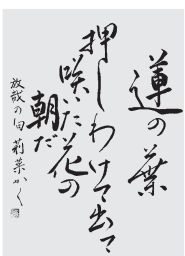 蓮の葉
押しわけて出て
咲いた花の
朝だ
放哉の句 莉菜かく